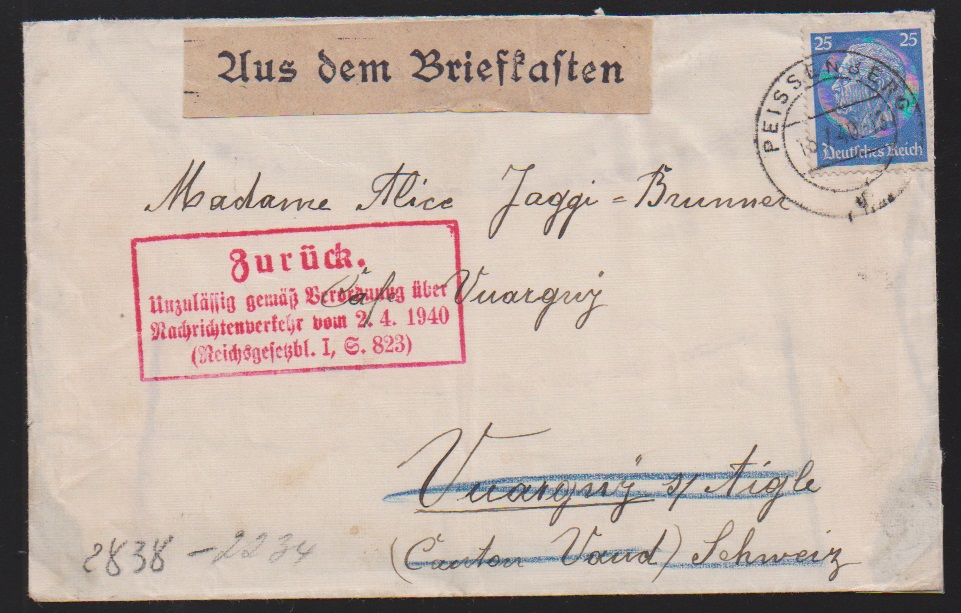 Aus dem Briefkasten
25 25
Deutsches Reich
PEISSENBERG
Madame Alice Jaggi=Brunner
Cafe Vuargny
Zurück.
Unzulässig gemäß Verordnung über
Nachrichtenverkehr vom 2. 4. 1940
(Reichsgesetzbl. I, S. 823)
Vuargny s/ Aigle
(Canton Vaud) Schweiz
2838 - 2234